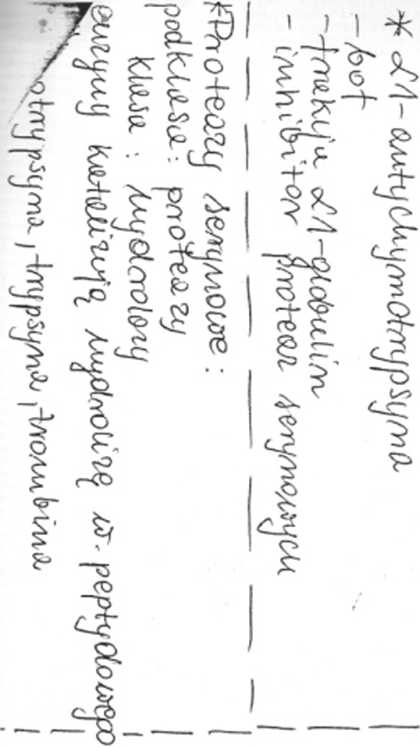 * α1-antychymotrypsyna
- bot
- frakcja α1-globulin
- inhibitor proteaz serynowych
* Proteazy serynowe:
podklasa: proteazy
klasa: hydrolazy
enzymy katalizują hydrolizę w. peptydowego
trypsyna, trombina